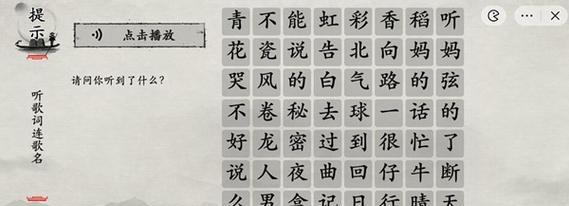 提示
点击播放
请问你听到了什么?
听歌词连歌名
青不能虹彩香稻听
花瓷说告北向妈妈
哭风的白气路的弦
不卷秘去球一话的
好龙密过到很忙了
说人夜曲回仔牛断
么男盒记日行晴天